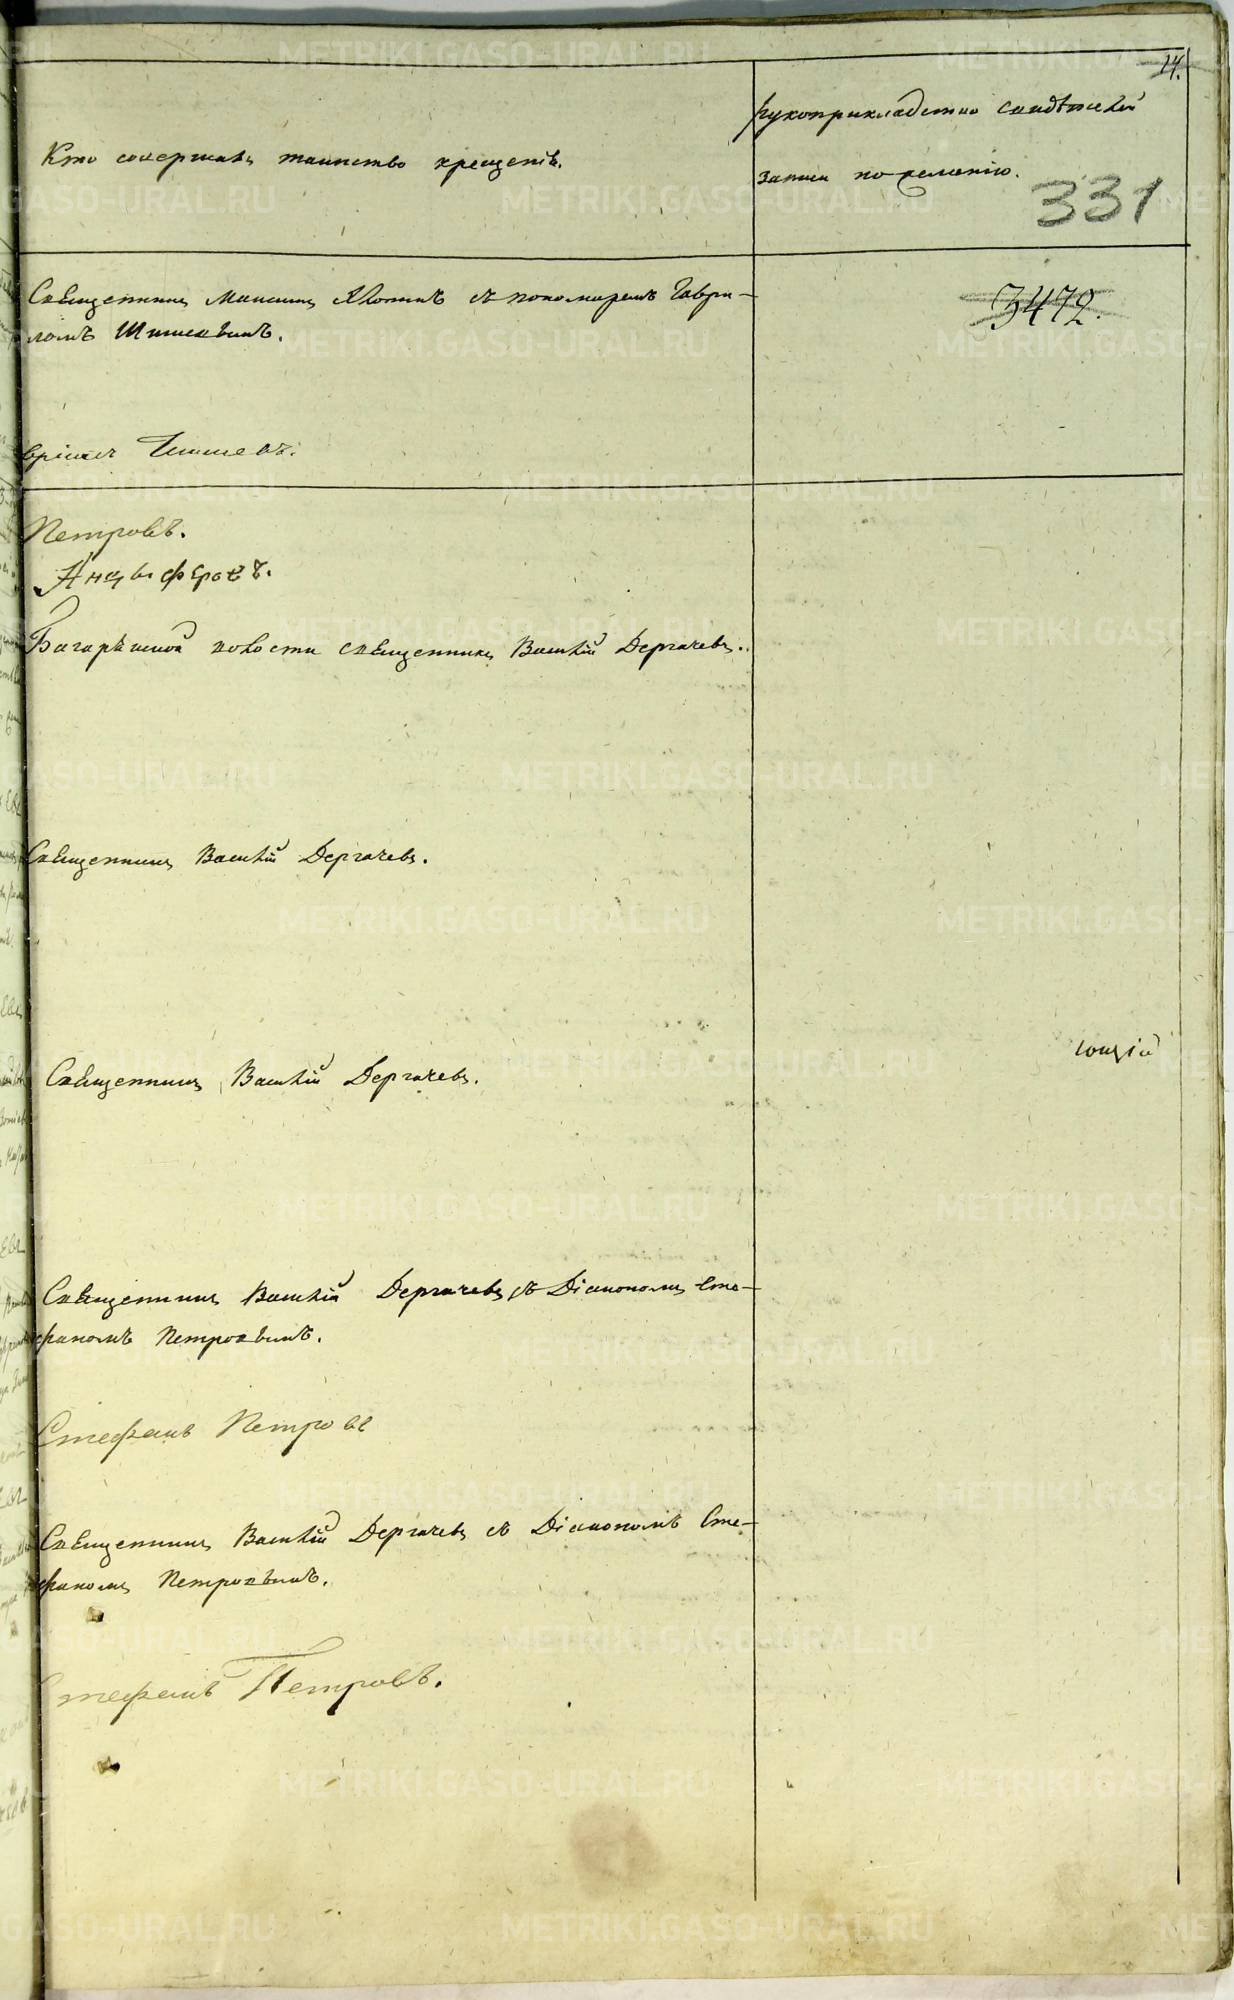 14.
Кто совершалъ таинство крещенія.
рукоприкладство свидѣтелей
записи по желанію.
331
3472.
Священникъ Максимъ с пономаремъ Гаври-
ломъ Шишевымъ.
Шишевъ.
Петровъ.
Анцыферовъ.
Багаряцкой волости священникъ Василій Дергачевъ.
Священникъ Василій Дергачевъ.
Священникъ Василій Дергачевъ.
ющій
Священникъ Василій Дергачевъ съ Діакономъ Сте-
фаномъ Петровымъ.
Стефанъ Петровъ
Священникъ Василій Дергачевъ съ Діакономъ Сте-
фаномъ Петровымъ.
Стефанъ Петровъ.
METRIKI.GASO-URAL.RU